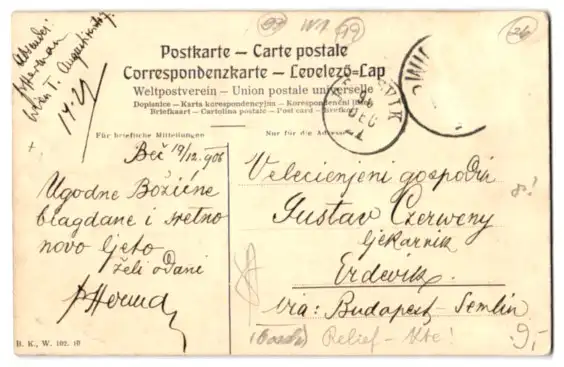 Absender:
Herman
Wien I. Augustinerstr.
14.21
93 WI 19
26
Postkarte – Carte postale
Correspondenzkarte – Levelező-Lap
Weltpostverein – Union postale universelle
Dopisnice – Karta korespondencyjna – Korespondenční lístek
Briefkaart – Cartolina postale – Post card – Brefkort
Für briefliche Mitteilungen
Nur für die Adresse
DEC
Beč 19/12.906
Ugodne Božićne
blagdane i sretno
novo ljeto
želi odani
Velecienjeni gospodin
Gustav Czerweny
ljekarnik
Erdevik.
via: Budapest-Semlin
Relief-Kte!
9,-
B. K., W. 102. 10